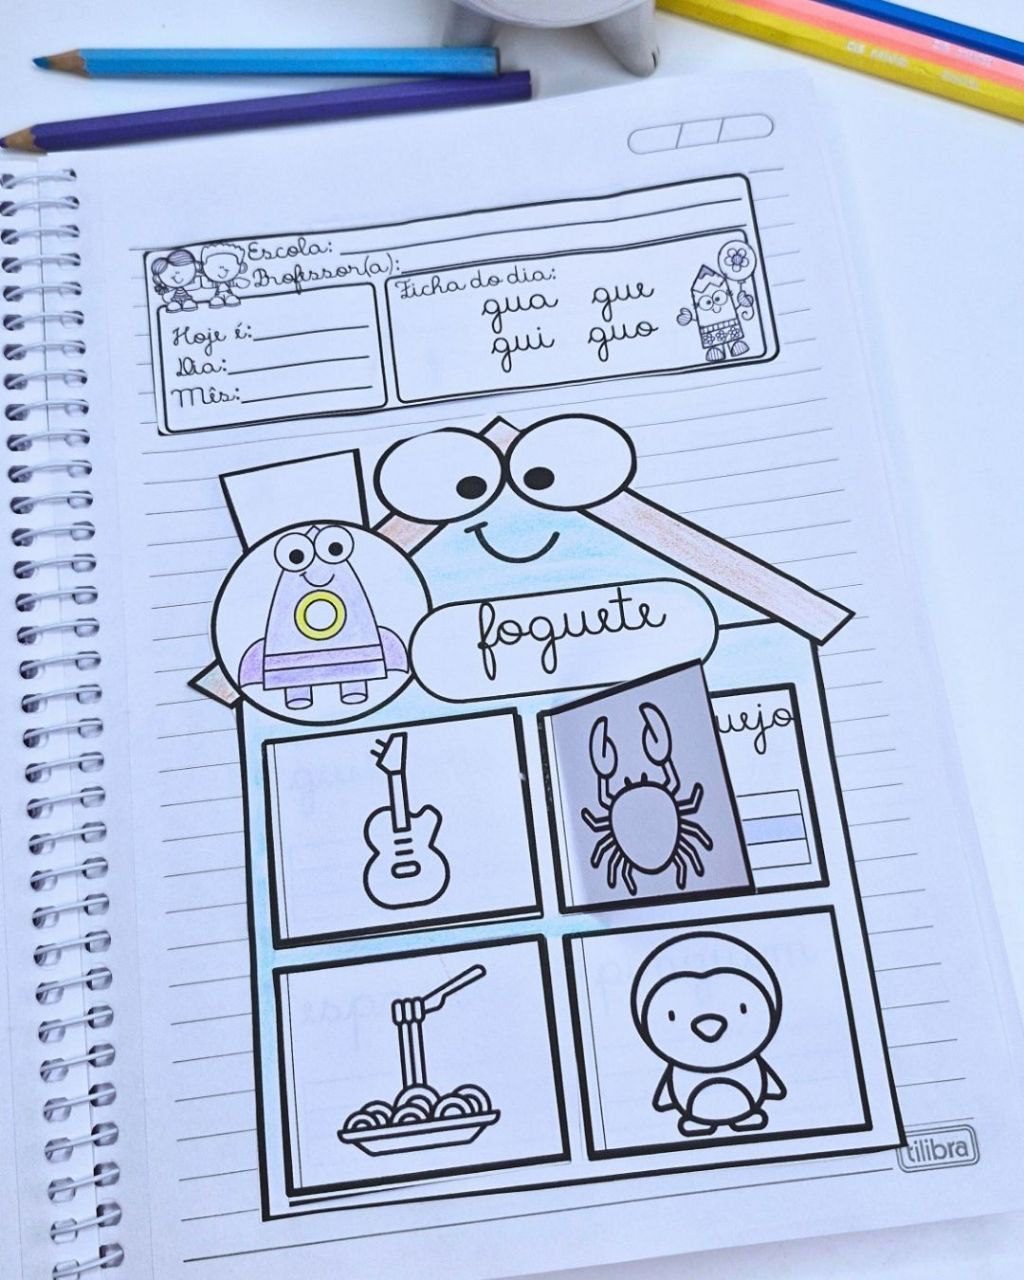 Escola:
Professor(a):
Hoje é:
Dia:
Mês:
Ficha do dia:
gua gue
gui guo
foguete
uejo
tilibra